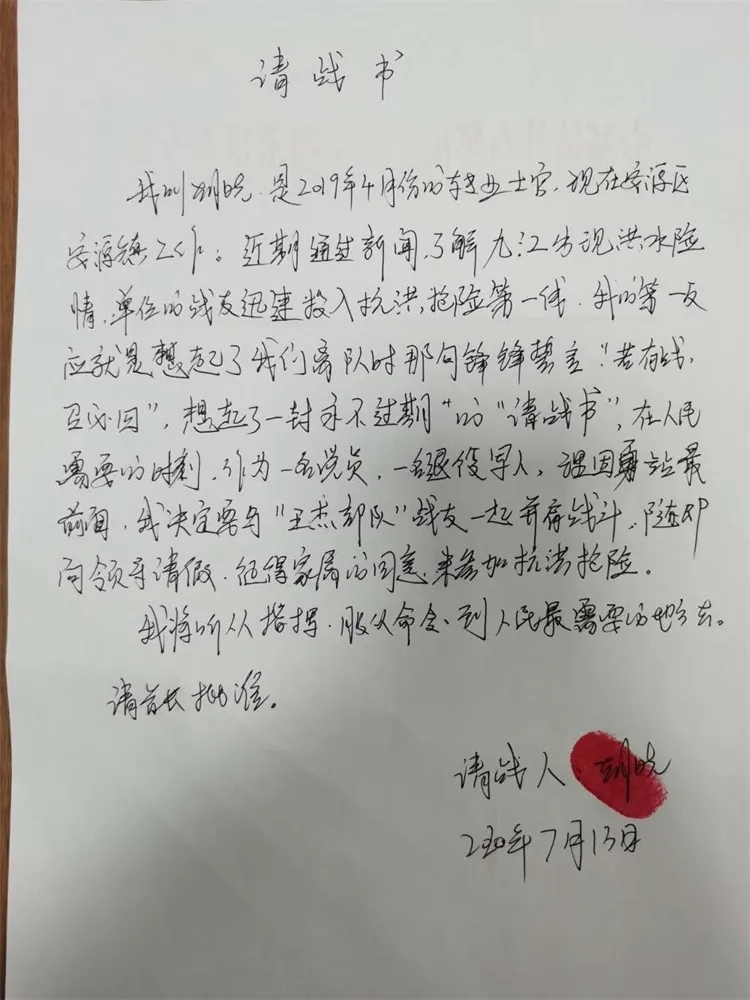 请战书
我叫胡晓，是2019年4月份的转业士官，现在安源区
安源镇工作。近期通过新闻，了解九江出现洪水险
情，单位的战友迅速投入抗洪抢险第一线，我的第一反
应就是想起了我们离队时那句铮铮誓言“若有战，
召必回”，想起了一封永不过期“的“请战书”，在人民
需要的时刻，作为一名党员，一名退役军人，理因勇站最
前面，我决定要与“王杰部队”战友一起并肩战斗，随即
向领导请假，征得家属的同意，来参加抗洪抢险。
我将听从指挥、服从命令、到人民最需要的地方去。
请首长批准。
请战人：胡晓
2020年7月13日